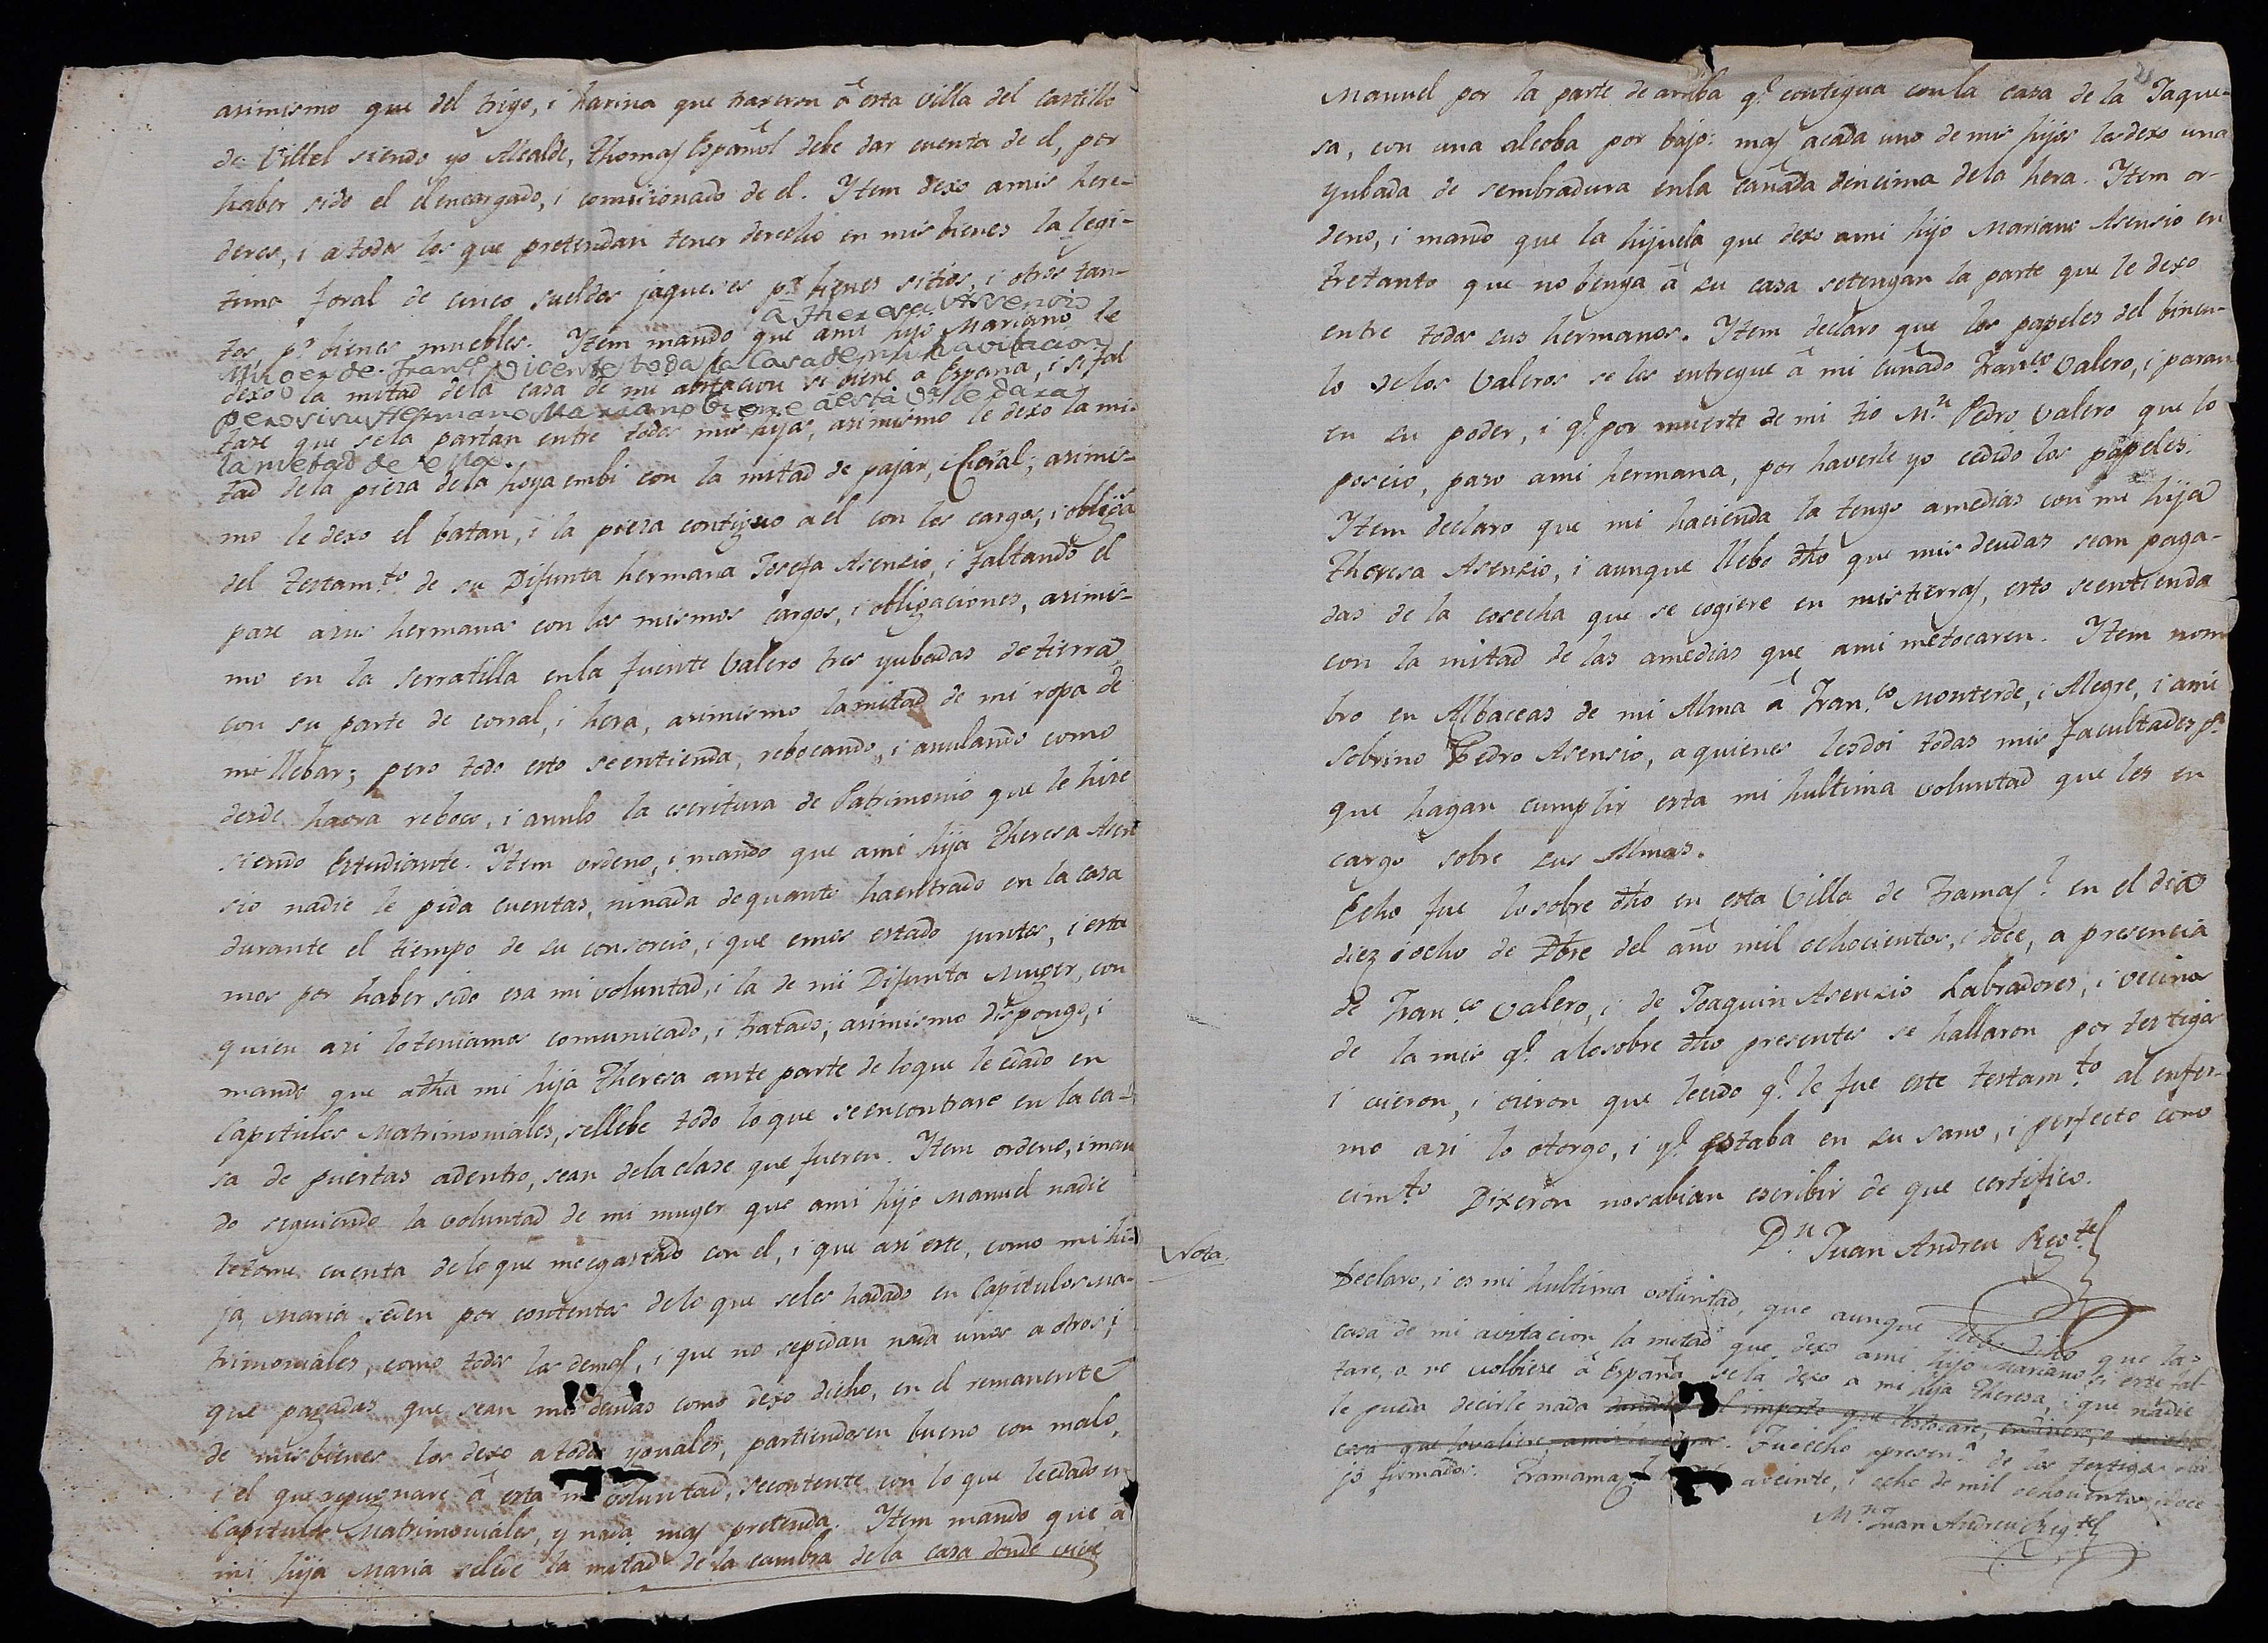 asimismo que del trigo, i harina que traxeron â esta villa del Castillo
de Villel siendo yo Alcalde, Thomas Español debe dar cuenta de el, por
haber sido el el encargado, i comisionado de el. Ytem dexo a mis here-
deros, i a todos los que pretendan tener derecho en mis bienes la legi-
tima foral de cinco sueldos jaqueses p.r bienes sitios, i otros tan-
â Theresa Assensio
tos p.r bienes muebles. Ytem mando que a mi hijo Mariano le
Muger de Fran.co Vicente toda la Casa de mi havitacion
dexo la mitad de la casa de mi abitacion si biene a España, i si fal
pero si su Hermano Mariano biene â esta V.a le dara
tase que se la partan entre todos mis hijos, asimismo le dexo la mi-
la metad de ella.
tad de la pieza de la hoya embi con la mitad de pajar, i Coral; asimis-
mo le dexo el batan, i la pieza contiguo a el con los cargos, i obliga
del testam.to de su Difunta hermana Josefa Asensio, i faltando el
pase a sus hermanas con los mismos cargos, i obligaciones, asimis-
mo en la serratilla en la fuente Valero tres yubadas de tierra
con su parte de corral, i hera, asimismo la mitad de mi ropa de
mi llebar; pero todo esto se entienda, rebocando, i anulando como
desde haora reboco, i anulo la escritura de Patrimonio que le hize
siendo Estudiante. Ytem ordeno, i mando que a mi hija Theresa Asen
sio nadie le pida cuentas, ni nada de quanto ha entrado en la casa
durante el tiempo de su consorcio, i que emos estado juntos, i esta
mos por haber sido esa mi voluntad, i la de mi Difunta Muger, con
quien asi lo teniamos comunicado, i tratado; asimismo dispongo, i
mando que a dha mi hija Theresa ante parte de lo que le e dado en
Capitulos Matrimoniales, se llebe todo lo que se encontrase en la ca-
sa de puertas adentro, sean de la clase que fueren. Ytem ordeno, i man
do siguiendo la voluntad de mi muger que a mi hijo Manuel nadie
le tome cuenta de lo que me e gastado con el, i que asi este, como mi hi-
ja Maria se den por contentos de lo que se les ha dado en Capitulos Ma-
trimoniales, como todos los demas, i que no se pidan nada unos a otros, i
que pagadas que sean mis deudas como dexo dicho, en el remanente
de mis bienes los dexo a todos yguales, partiendosen bueno con malo,
i el que repugnare â esta mi voluntad, se contente con lo que le e dado en
Capitulos Matrimoniales, y nada mas pretenda. Ytem mando que â
mi hija Maria se le de la mitad de la cambra de la casa donde vive
Manuel por la parte de arriba q.e contigua con la casa de la Jaque-
sa, con una alcoba por bajo: mas a cada uno de mis hijos les dexo una
yubada de sembradura en la cañada d'encima de la hera. Ytem or-
deno, i mando que la hijuela que dexo a mi hijo Mariano Asensio en
tretanto que no benga â su casa se tengan la parte que le dexo
entre todos sus hermanos. Ytem declaro que los papeles del bincu-
lo de los Valeros se les entregue â mi cuñado Fran.co Valero, i paran
en su poder, i q.e por muerte de mi tio M.n Pedro Valero que lo
poseio, paso a mi hermana, por haverle yo cedido los papeles.
Ytem declaro que mi hacienda la tengo a medias con mi hija
Theresa Asensio, i aunque llebo dho que mis deudas sean paga-
das de la cosecha que se cogiere en mis tierras, esto se entienda
con la mitad de las a medias que a mi me tocaren. Ytem nom
bro en Albaceas de mi Alma â Fran.co Monterde, i Alegre, i a mi
sobrino Pedro Asensio, a quienes les doi todas mis facultades p.a
que hagan cumplir esta mi hultima voluntad que les en
cargo sobre sus Almas.
Echo fue lo sobre dho en esta Villa de Tramas.l en el dia
diez i ocho de Dbre del año mil ochocientos, i doce, a presencia
de Fran.co Valero, i de Joaquin Asensio Labradores, i vecinos
de la mis q.e a lo sobre dho presentes se hallaron por testigos
i vieron, i oieron que leido q.e le fue este testam.to al enfer-
mo asi lo otorgo, i q.e estaba en su sano, i perfecto cono
cim.to Dixeron no sabian escribir de que certifico.
D.n Juan Andreu Reg.te
Nota
Declaro, i es mi hultima voluntad, que aunque llebo dicho que la
casa de mi avitacion la mitad que dexo a mi hijo Mariano, si este fal-
tare, o no volbiese â España se la dexo a mi hija Theresa, i que nadie
le pueda decirle nada dandoles el importe que les tocare, en dinero, o
cosa que lo valiere, . Fue echo a presen.a de los testigos
jo firmados. Tramamas.l a veinte, i ocho de mil ochocientos, i doce
M.n Juan Andreu Reg.te